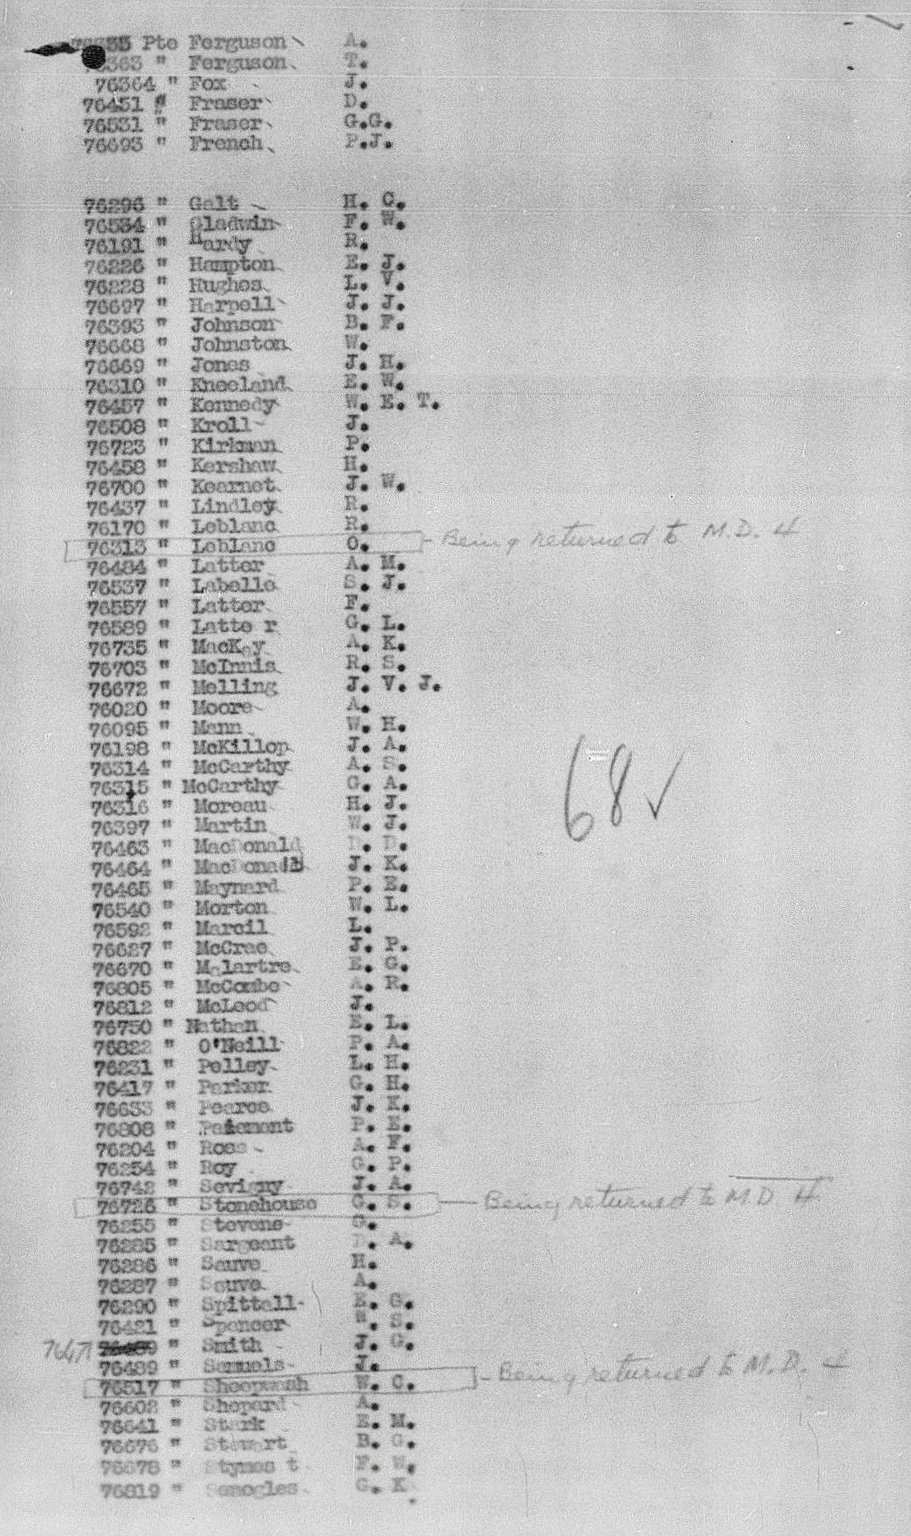 Pte Ferguson A.
76363 " Ferguson T.
76364 " Fox J.
76451 " Fraser D.
76531 " Fraser G.G.
76693 " French P.J.
76296 " Galt H. C.
76534 " Gladwin F. W.
76191 " Hardy R.
76226 " Hampton E. J.
76228 " Hughes L. V.
76697 " Harpell J. J.
76393 " Johnson B. F.
76668 " Johnston W.
76669 " Jones J. H.
76310 " Kneeland E. W.
76457 " Kennedy W. E. T.
76508 " Kroll J.
76723 " Kirkman P.
76458 " Kershaw H.
76700 " Kearnet J. W.
76437 " Lindley R.
76170 " Leblanc R.
76313 " Leblanc O. - Being returned to M.D. 4
76484 " Latter A. M.
76537 " Labelle S. J.
76557 " Latter F.
76589 " Latte r G. L.
76735 " MacKay A. K.
76703 " McInnis R. S.
76672 " Melling J. V. J.
76020 " Moore A.
76095 " Mann W. H.
76198 " McKillop J. A.
76314 " McCarthy A. S.
76315 " McCarthy G. A.
76316 " Moreau H. J.
76397 " Martin W. J.
68 ✓
76463 " MacDonald D. D.
76464 " MacDonald J. K.
76465 " Maynard P. E.
76540 " Morton W. L.
76592 " Marcil L.
76627 " McCrae J. P.
76670 " Malartre E. G.
76805 " McCombe A. R.
76812 " McLeod J.
76750 " Nathan E. L.
76822 " O'Neill P. A.
76231 " Pelley L. H.
76417 " Parker G. H.
76633 " Pearce J. K.
76808 " Paiement P. E.
76204 " Ross A. F.
76254 " Roy G. P.
76742 " Sevigny J. A.
76726 " Stonehouse G. S. - Being returned to M.D. 4.
76255 " Stevens G.
76285 " Sargeant D. A.
76286 " Sauve H.
76287 " Sauve A.
76290 " Spittall E. G.
76421 " Spencer W. S.
76471 " Smith J. G.
76489 " Samuels J.
76517 " Sheepwash W. C. - Being returned to M.D. 4
76602 " Shepard A.
76641 " Stark E. M.
76676 " Stewart B. G.
76678 " Stymes t F. W.
76819 " Senogles G. K.